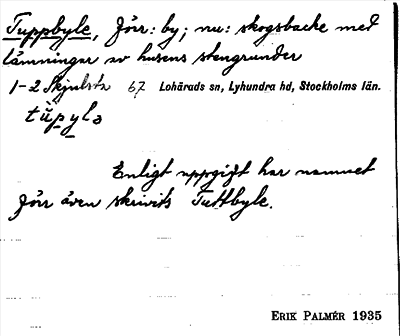 Tuppbyle, förr: by; nu: skogsbacke med
lämningar av husens stengrunder
1-2 Skjulsta 67 Lohärads sn, Lyhundra hd, Stockholms län.
tùpylə
Enligt uppgift har namnet
förr även skrivits Tuttbyle.
ERIK PALMÉR 1935